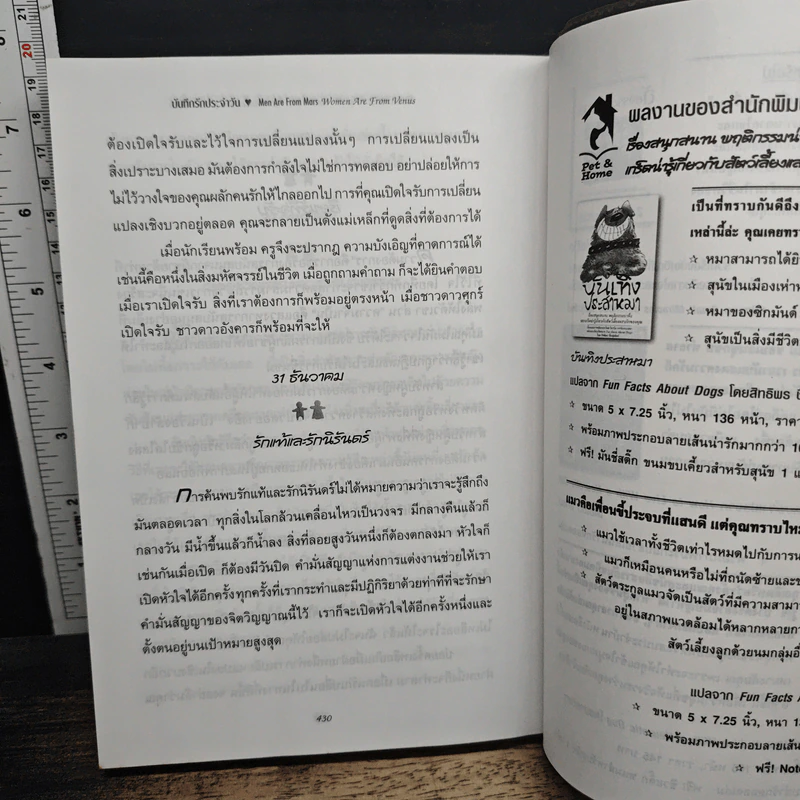 บันทึกรักประจำวัน ♥ Men Are From Mars Women Are From Venus
ต้องเปิดใจรับและไว้ใจการเปลี่ยนแปลงนั้นๆ การเปลี่ยนแปลงเป็น
สิ่งเปราะบางเสมอ มันต้องการกำลังใจไม่ใช่การทดสอบ อย่าปล่อยให้การ
ไม่ไว้วางใจของคุณผลักคนรักให้ไกลออกไป การที่คุณเปิดใจรับการเปลี่ยน
แปลงเชิงบวกอยู่ตลอด คุณจะกลายเป็นดั่งแม่เหล็กที่ดูดสิ่งที่ต้องการได้
เมื่อนักเรียนพร้อม ครูจึงจะปรากฏ ความบังเอิญที่คาดการณ์ได้
เช่นนี้คือหนึ่งในสิ่งมหัศจรรย์ในชีวิต เมื่อถูกถามคำถาม ก็จะได้ยินคำตอบ
เมื่อเราเปิดใจรับ สิ่งที่เราต้องการก็พร้อมอยู่ตรงหน้า เมื่อชาวดาวศุกร์
เปิดใจรับ ชาวดาวอังคารก็พร้อมที่จะให้
31 ธันวาคม
รักแท้และรักนิรันดร์
การค้นพบรักแท้และรักนิรันดร์ไม่ได้หมายความว่าเราจะรู้สึกถึง
มันตลอดเวลา ทุกสิ่งในโลกล้วนเคลื่อนไหวเป็นวงจร มีกลางคืนแล้วก็
กลางวัน มีน้ำขึ้นแล้วก็น้ำลง สิ่งที่ลอยสูงวันหนึ่งก็ต้องตกลงมา หัวใจก็
เช่นกันเมื่อเปิด ก็ต้องมีวันปิด คำมั่นสัญญาแห่งการแต่งงานช่วยให้เรา
เปิดหัวใจได้อีกครั้งทุกครั้งที่เรากระทำและมีปฏิกิริยาด้วยท่าทีที่จะรักษา
คำมั่นสัญญาของจิตวิญญาณนี้ไว้ เราก็จะเปิดหัวใจได้อีกครั้งหนึ่งและ
ตั้งตนอยู่บนเป้าหมายสูงสุด
430
Pet &
Home
ผลงานของสำนักพิม
เรื่องสนุกสนาน พฤติกรรมน่
เกร็ดน่ารู้เกี่ยวกับสัตว์เลี้ยงแส
บันเทิง
ประสาหมา
บันเทิงประสาหมา
เป็นที่ทราบกันดีถึง
เหล่านี้ล่ะ คุณเคยทรา
☆ หมาสามารถได้ยิ
☆ สุนัขในเมืองเห่าห
☆ หมาของซิกมันด์
☆ สุนัขเป็นสิ่งมีชีวิต
แปลจาก Fun Facts About Dogs โดยสิทธิพร
☆ ขนาด 5 x 7.25 นิ้ว, หนา 136 หน้า, ราคา
☆ พร้อมภาพประกอบลายเส้นน่ารักมากกว่า 10
☆ ฟรี! มันชี่สติ๊ก ขนมขบเคี้ยวสำหรับสุนัข 1
แมวคือเพื่อนขี้ประจบที่แสนดี แต่คุณทราบไหม
☆ แมวใช้เวลาทั้งชีวิตเท่าไรหมดไปกับการน
☆ แมวก็เหมือนคนหรือไม่ที่ถนัดซ้ายและข
☆ สัตว์ตระกูลแมวจัดเป็นสัตว์ที่มีความสามา
อยู่ในสภาพแวดล้อมได้หลากหลายกา
สัตว์เลี้ยงลูกด้วยนมกลุ่มอื่
แปลจาก Fun Facts A
☆ ขนาด 5 x 7.25 นิ้ว, หนา 1
☆ พร้อมภาพประกอบลายเส้น
☆ ฟรี! Note